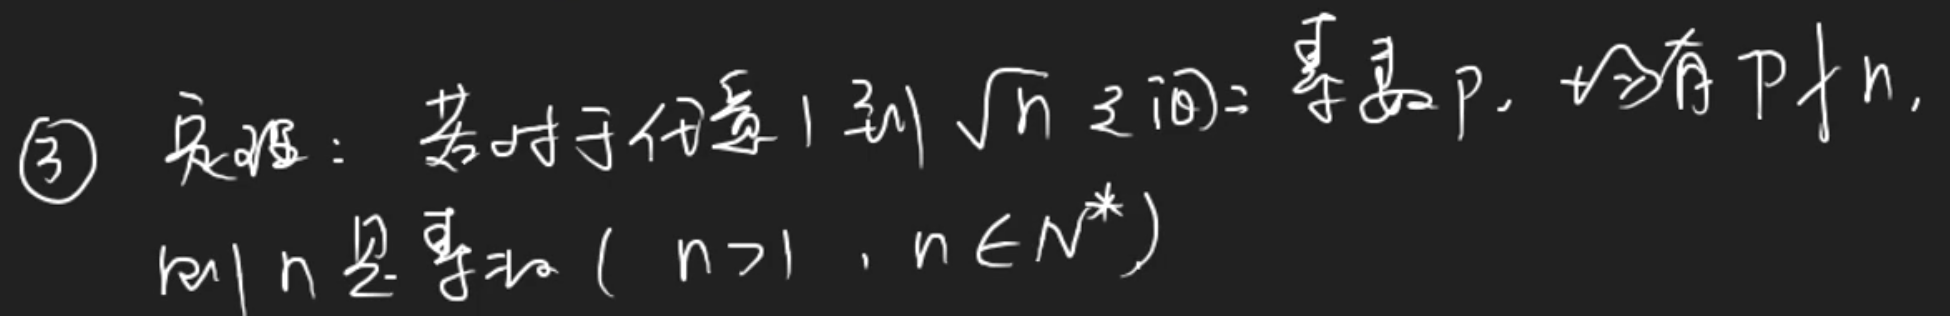 ③ 定理：若对于任意1到√n之间的素数p，均有p∤n，
则n是素数（n>1，n∈N*）